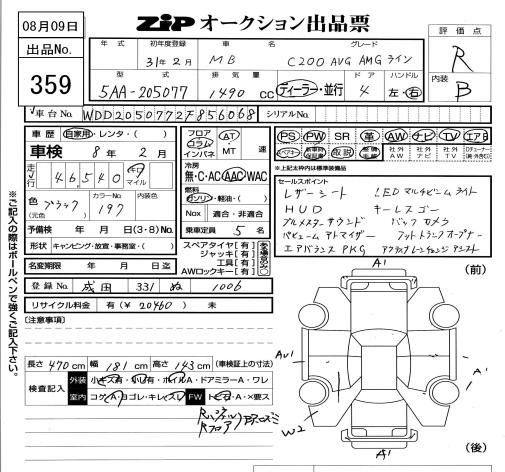 08月09日
出品No.
359
ZIP オークション出品票
評価点
R
内装
B
年式 初年度登録 車名 グレード
31年2月 MB C200 AVG AMGライン
型式 排気量 ドア ハンドル
5AA-205077 1490 cc ディーラー・並行 4 左・右
車台No. WDD2050772F856068 シリアルNo.
車歴 自家用・レンタ・( )
車検 8年2月
走行 46,540 キロ マイル
色 (元色) ブラック カラーNo. 197 内装色
予備検 年 月 日(3・8)No.
形状 キャンピング・放置・事務室・( )
名変期限 年 月 日迄
フロア コラム インパネ AT・MT 速
冷房 無・C・AC AAC WAC
燃料 ガソリン・軽油・( )
Nox 適合・非適合
乗車定員 5名
スペアタイヤ[有]
ジャッキ[有]
工具[有]
AWロックキー[有]
PS PW SR 革 AW ナビ TV エアB
取説 社外AW 社外ナビ 社外TV
※上記太枠内は標準装備品
セールスポイント
レザーシート LEDマルチビームライト
HUD キーレスゴー
ブルメスターサウンド バックカメラ
パヒュームアトマイザー フットトランクオープナー
エアバランスPKG アクティブレーンチェンジアシスト
登録No. 成田 331 ぬ 1006
リサイクル料金 有(¥20460) 未
[注意事項]
長さ 470cm 幅 181cm 高さ 143cm (車検証上の寸法)
検査記入 外装 小キズ有・小凹有・ホイルA・ドアミラーA・ワレ
室内 コゲA・ヨゴレ・キレ・スレ FW トビ石・A・×要ス
※ご記入の際はボールペンで強くご記入下さい。
A1
(前)
AU1
A1
W2
A1
(後)